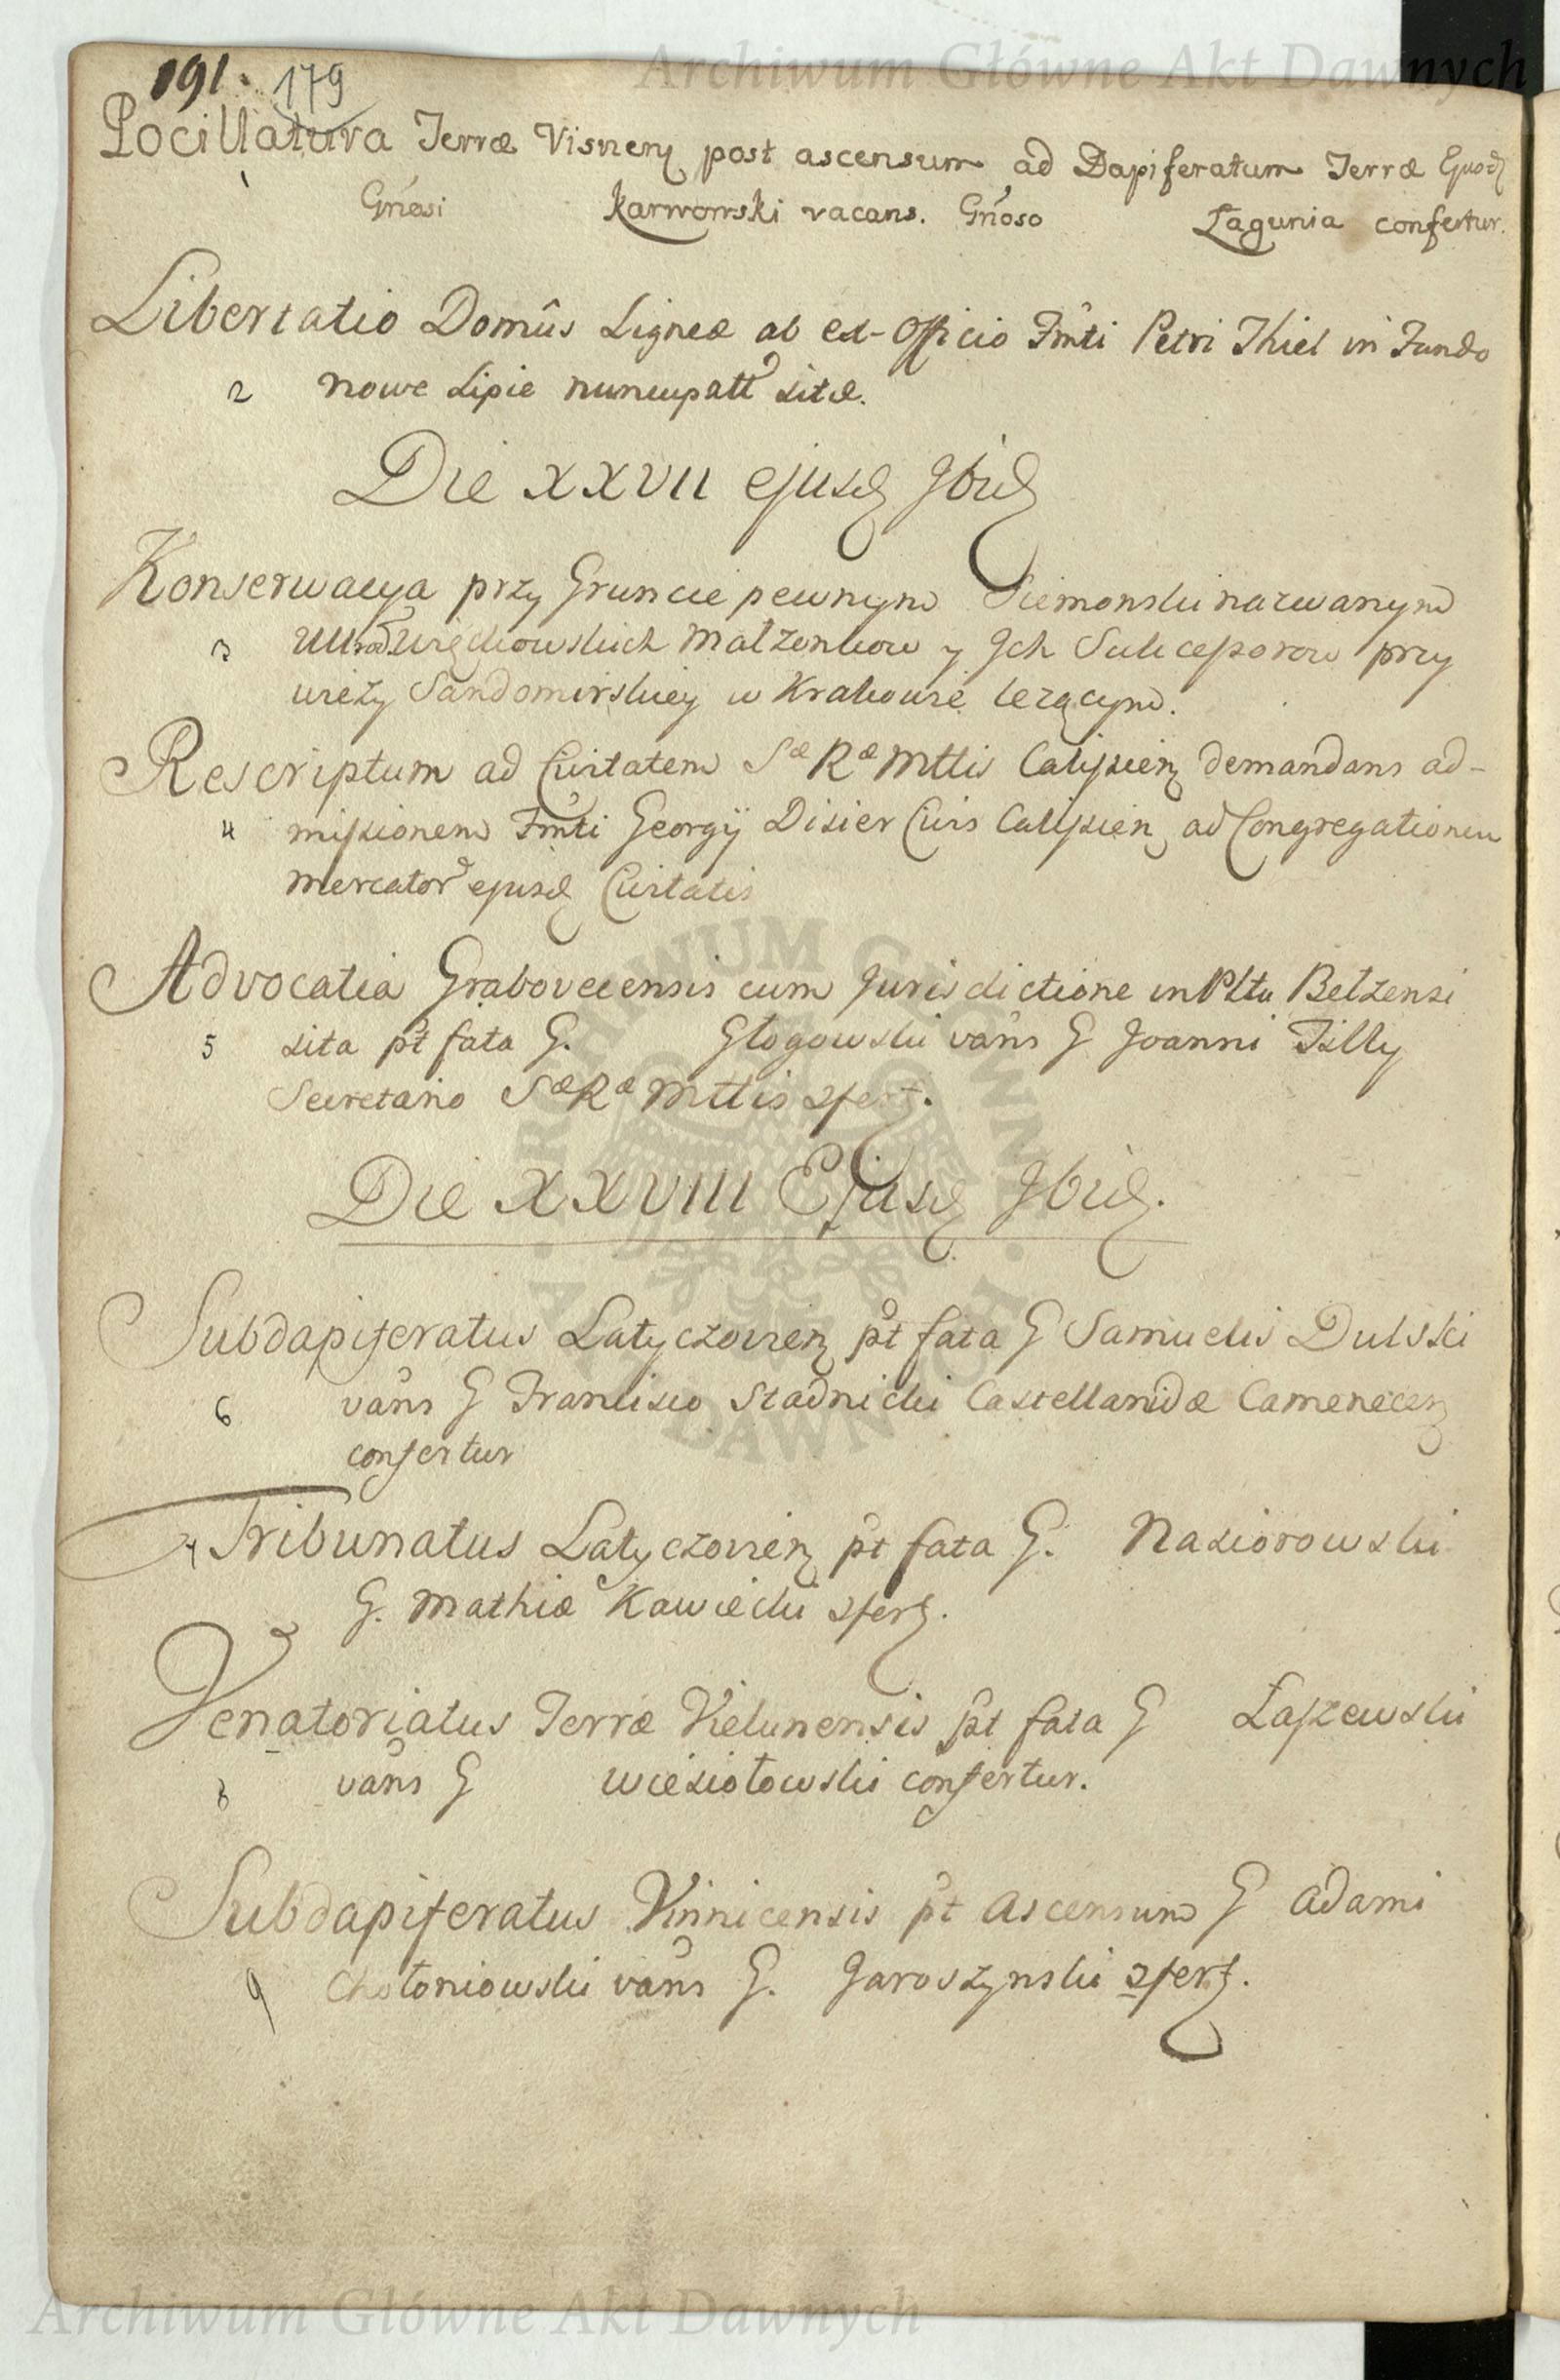 Archiwum Główne Akt Dawnych
191. 179
Pocillatura Terræ Visnen post ascensum ad Dapiferatum Terræ Ejusd
1 Gnosi Karwowski vacans. Gnoso Łagunia confertur.
Libertatio Domûs Ligneæ ab ex-Officio Fmti Petri Thiel in Fundo
2 Nowe Lipie nuncupatt sitæ.
Die XXVII ejusd 9bris
Konserwacya przy Gruncie pewnym Siemonski nazwanym
3 Małzonkow y Jch Sukcessorow przy
wieży Sandomirskiey w Krakowie lezącym.
Rescriptum ad Civitatem Sæ Ræ Mttis Calissien demandans ad-
4 missionem Fmti Georgÿ Disier Civis Calissien ad Congregationem
mercator ejusd Civitatis
Advocatia Grabovecensis cum Jurisdictione in Plttu Belzensi
5 sita pt fata G. Głogowski vans G Joanni Tilly
Secretario Sæ Ræ Mttis confert.
Die XXVIII Ejusd 9bris.
Subdapiferatus Latyczovien pt fata G Samuelis Dulski
6 vans G Francisco Stadnicki Castellanidæ Camenecen
confertur
7 Tribunatus Latyczovien pt fata G. Nasiorowski
G. Mathiæ Kawiecki confert.
Venatoriatus Terræ Vielunensis pt fata G Łaszewski
8 vans G Wiesiołowski confertur.
Subdapiferatus Vinnicensis pt ascensum G Adami
9 Chołoniowski vans G. Jaroszynski confert.
ARCHIWUM GŁÓWNE AKT DAWNYCH
Archiwum Główne Akt Dawnych